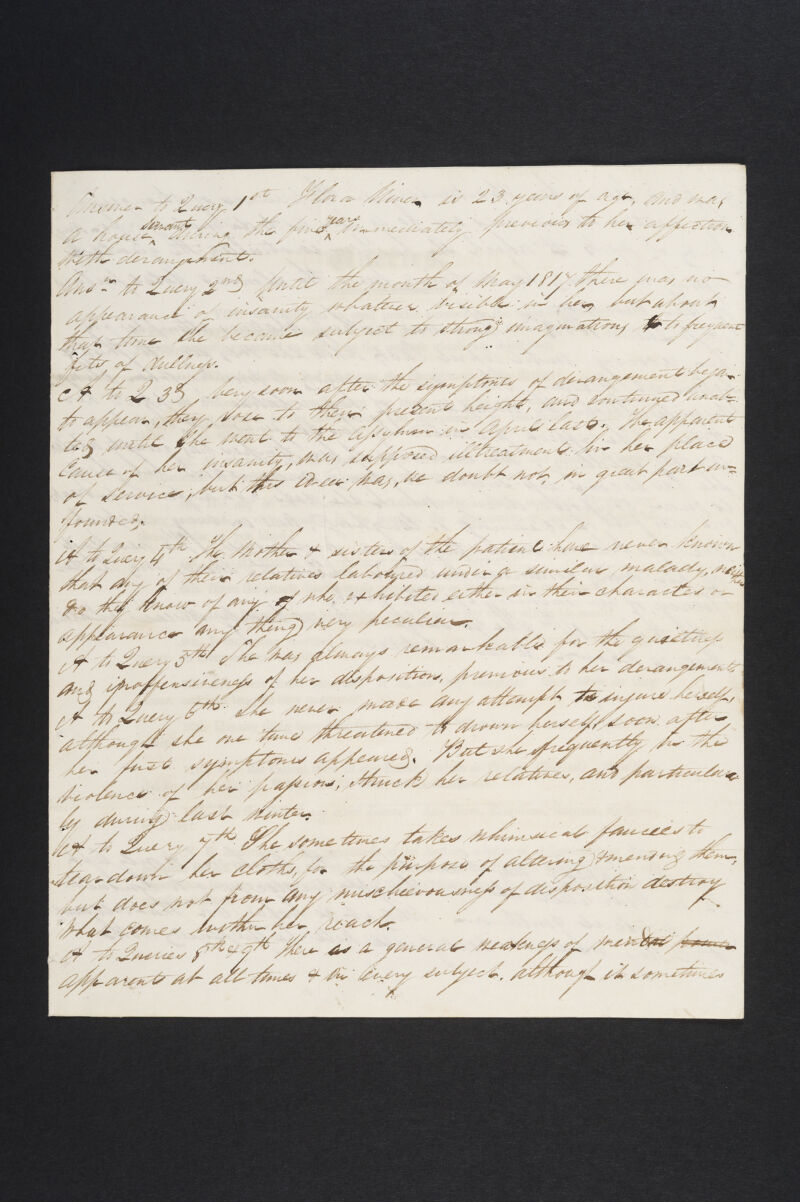 Answer to Query 1st Flora Niven is 23 years of age, and was
a house servant during the five years immediately previous to her affection
with derangement.
Ansr to Query 2nd Until the month of May 1817 there was no
appearance of insanity whatever visible in her, but about
that time she became subject to strong imaginations, & to frequent
fits of dullness.
A to Q 3d, Very soon after the symptoms of derangement began
to appear, they rose to their present height, and continued unab-
ted until she went to the assylum in April last. The apparent
Cause of her insanity, was supposed illtreatment in her place
of service, but this idea was, we doubt not, in great part un-
founded.
A to Query 4th The Mother & sisters of the patient have never known
that any of their relatives laboured under a similar malady, neither
do they know of any of who exhibited either in their character or
appearance any thing very peculiar.
A to Query 5th She was always remarkable for the quietness
and inoffensiveness of her disposition, previous to her derangement
A to Query 6th She never made any attempt to injure herself,
although she one time threatened to drown herself soon after
her first symptoms appeared. But she frequently in the
violence of her passion, struck her relatives, and particular
ly during last winter.
A to Query 7th She sometimes takes whimsical fancies to
tear down her cloths, for the purpose of altering & mending them,
but does not from any mischievousness of disposition destroy
what comes within her reach.
A to Queries 8th & 9th There is a general weakness of mind power
apparent at all times & on every subject. although it sometimes